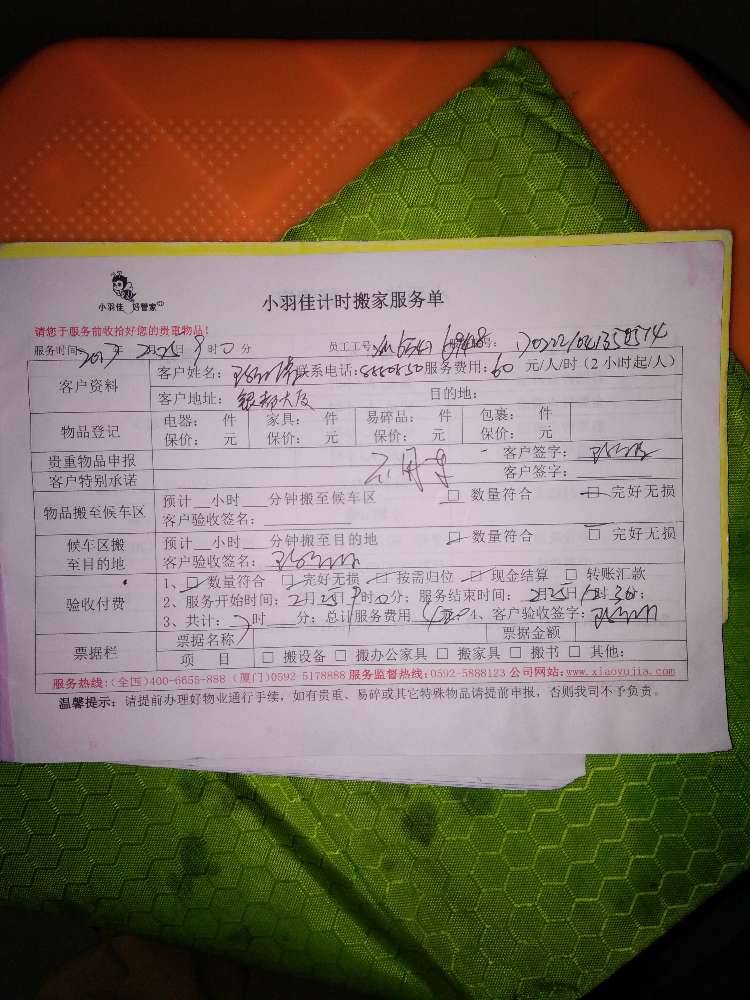 小羽佳 好管家
小羽佳计时搬家服务单
请您于服务前收拾好您的贵重物品!
服务时间: 2017年 2月25日 9时0分 员工工号: 号: 1702221041358574
客户资料 客户姓名: 联系电话: 服务费用: 60 元/人/时(2小时起/人)
客户地址: 目的地:
物品登记 电器: 件 家具: 件 易碎品: 件 包裹: 件
保价: 元 保价: 元 保价: 元 保价: 元
贵重物品申报 客户签字:
客户特别承诺 客户签字:
物品搬至候车区 预计__小时___分钟搬至候车区 □ 数量符合 □ 完好无损
客户验收签名:
候车区搬至目的地 预计__小时___分钟搬至目的地 □ 数量符合 □ 完好无损
客户验收签名:
验收付费 1、□ 数量符合 □ 完好无损 □ 按需归位 □ 现金结算 □ 转账汇款
2、服务开始时间: 2月25日9时0分; 服务结束时间: 2月25日 时30分;
3、共计: 时___分; 总计服务费用 4、客户验收签字:
票据栏 票据名称 票据金额
项 目 □ 搬设备 □ 搬办公家具 □ 搬家具 □ 搬书 □ 其他:
服务热线:(全国)400-6655-888 (厦门)0592-5178888 服务监督热线:0592-5888123 公司网站:www.xiaoyujia.com
温馨提示: 请提前办理好物业通行手续, 如有贵重、易碎或其它特殊物品请提前申报, 否则我司不予负责。